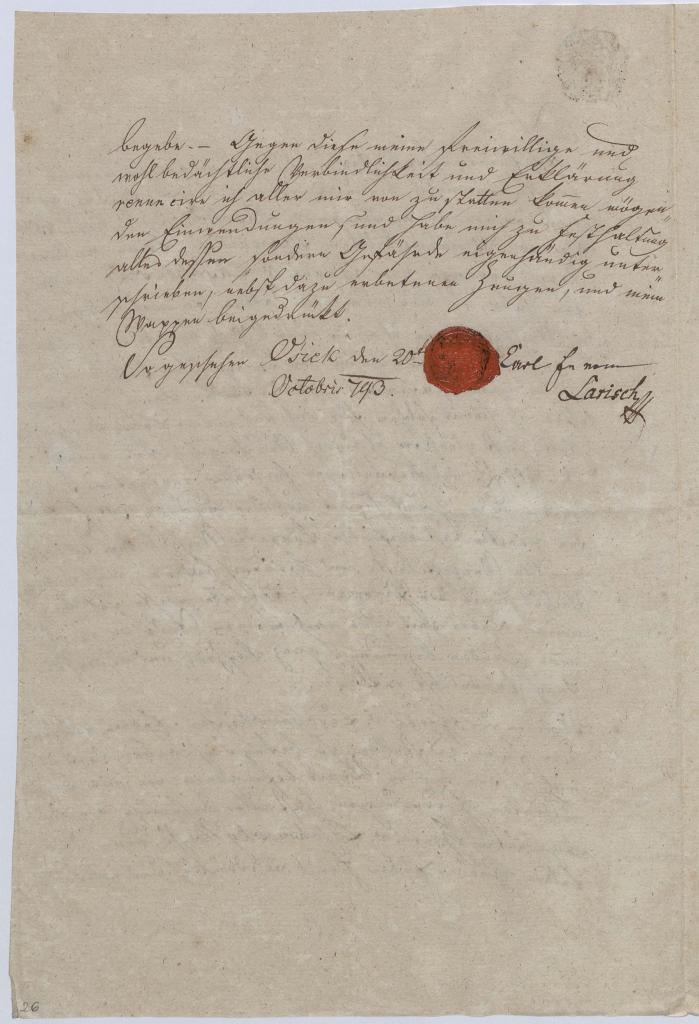 begebe. – Gegen diese meine freiwillige und
wohlbedächtliche Verbindlichkeit und Erklärung
renuncire ich aller mir von zu statten kommen mögen-
den Einwendungen, und habe mich zu Festhaltung
alles dessen sonder Gefährde eigenhändig unter
schrieben, nebst dazu erbetenen Zeugen, und mein
Wappen beigedrükt.
So geschehen Osiek den 20t
Octobris 793.
Carl
Larisch
26